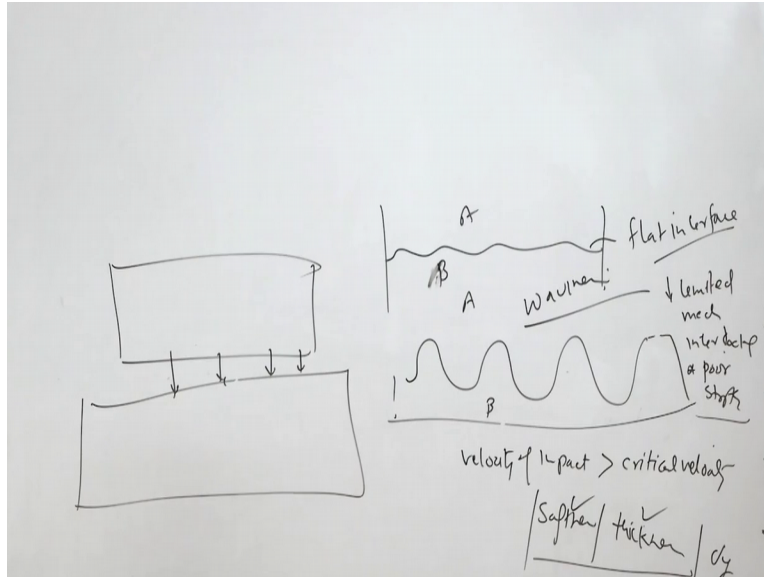 A
flat interface
B
A
Waviness
↓ limited
mech
interlocking
& poor
B
velocity of impact > critical velocity
thickness